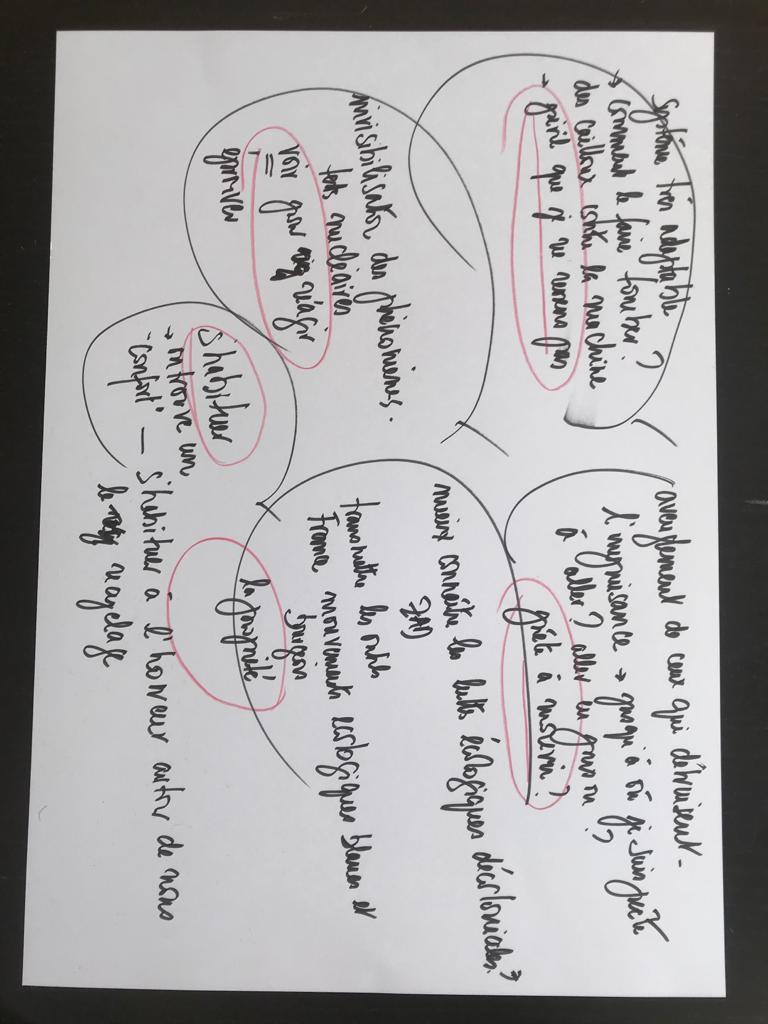 Système très adaptable
→ comment le faire tomber?
des cailloux contre la machine
→ péril que je ne verrai pas
invisibilisation des phénomènes.
tests nucléaires
voir pour réagir
=
éprouver
s'habituer
→ on trouve un
"confort" — s'habituer à l'horreur autour de nous
le recyclage
aveuglement de ceux qui détruisent -
l'impuissance → jusqu'à où je suis prête
à aller? aller en prison?
prête à mourir?
mieux connaître les luttes écologiques décoloniales. →
ZAD
transmettre les outils
France mouvements écologiques blancs et
bourgeois
la propriété